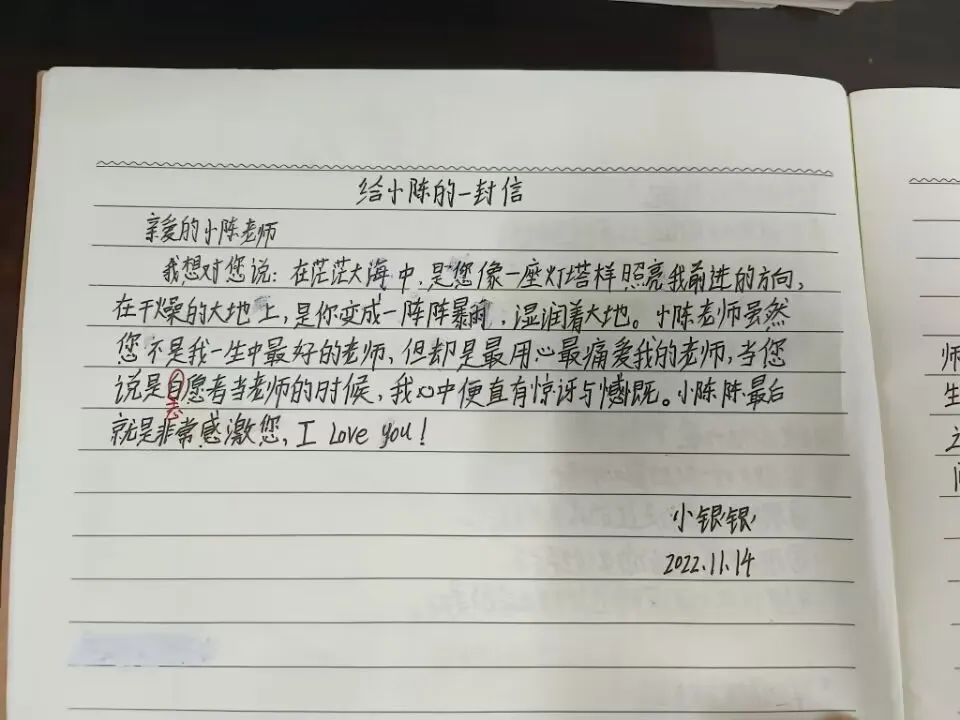 给小陈的一封信
亲爱的小陈老师
我想对您说：在茫茫大海中，是您像一座灯塔样照亮我前进的方向，
在干燥的大地上，是你变成一阵阵暴雨，湿润着大地。小陈老师虽然
您不是我一生中最好的老师，但却是最用心最痛爱我的老师，当您
说是自愿者当老师的时候，我心中便直有惊讶与憾既。小陈陈最后
志
就是非常感激您，I Love you！
小银银
2022.11.14
师
生